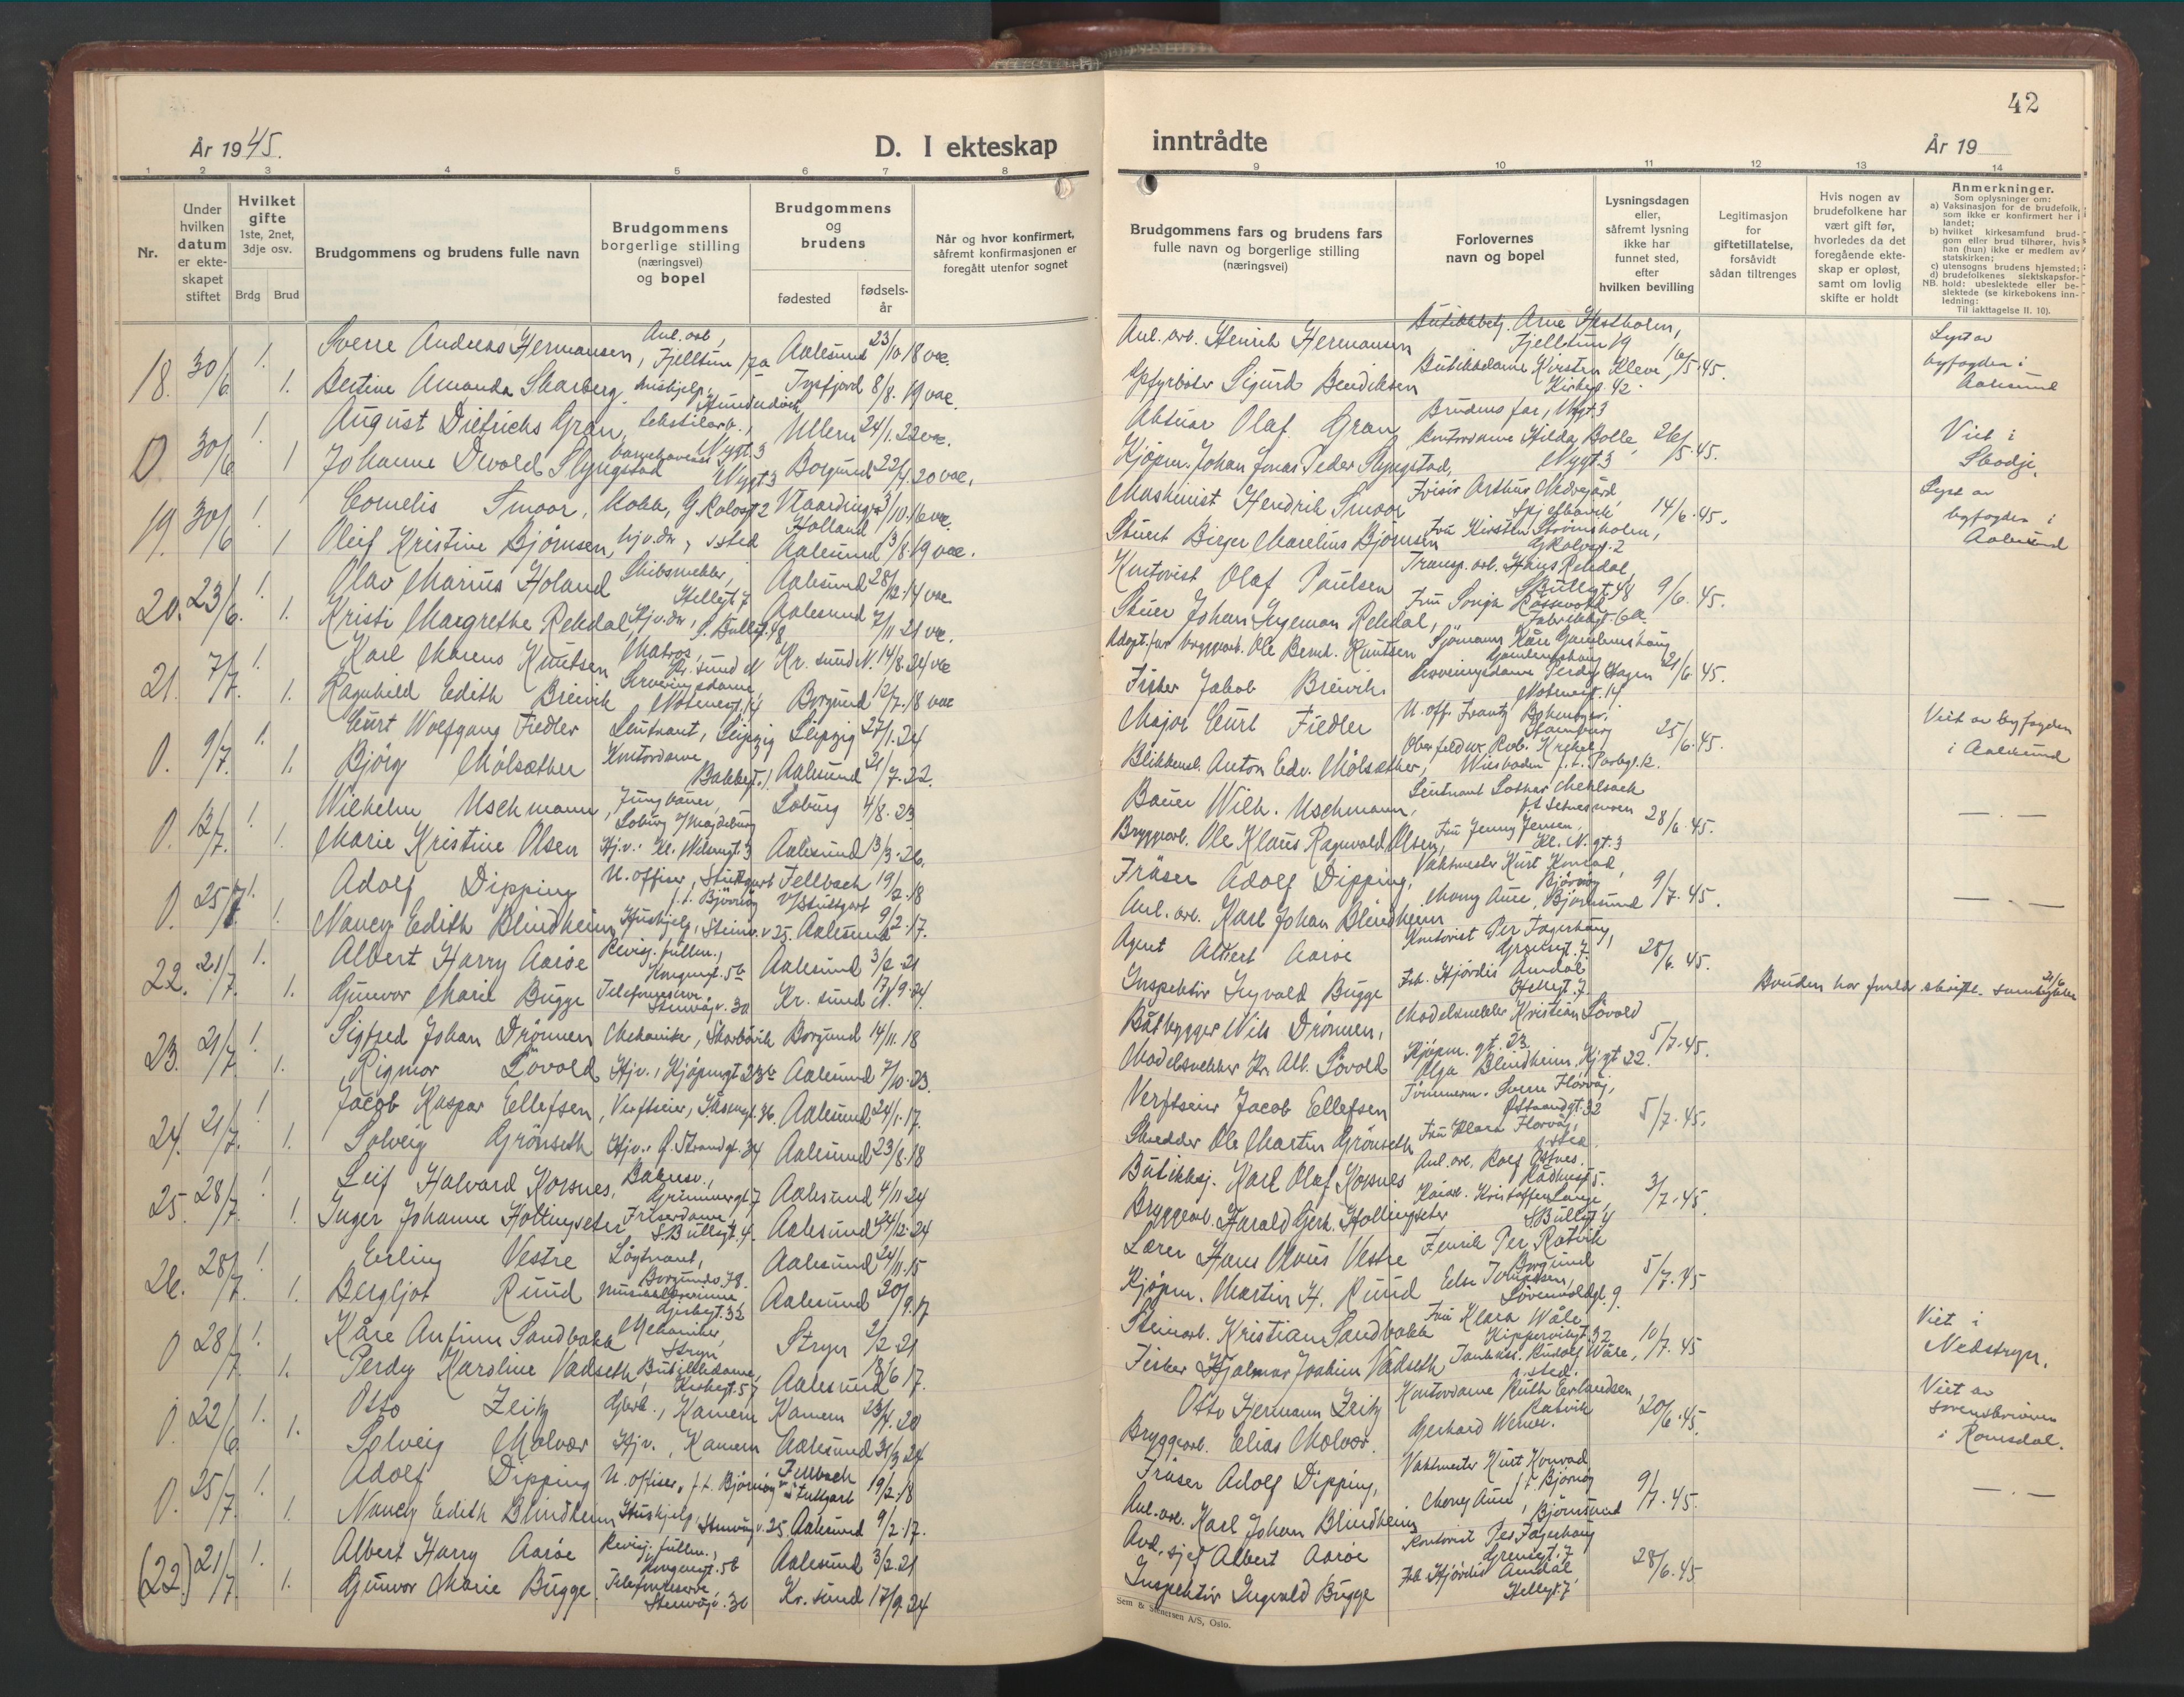 42
År 1945.
D. I ekteskap
inntrådte
År 19
1 2 3 4 5 6 7 8 9 10 11 12 13 14
Nr.
Under hvilken datum er ekteskapet stiftet
Hvilket gifte 1ste, 2net, 3dje osv.
Brdg
Brud
Brudgommens og brudens fulle navn
Brudgommens borgerlige stilling (næringsvei) og bopel
Brudgommens og brudens
fødested
fødsels-
år
Når og hvor konfirmert, såfremt konfirmasjonen er foregått utenfor sognet
Brudgommens fars og brudens fars fulle navn og borgerlige stilling (næringsvei)
Forlovernes navn og bopel
Lysningsdagen eller, såfremt lysning ikke har funnet sted, efter hvilken bevilling
Legitimasjon for giftetillatelse, forsåvidt sådan tiltrenges
Hvis nogen av brudefolkene har vært gift før, hvorledes da det foregående ekteskap er opløst, samt om lovlig skifte er holdt
Anmerkninger.
Som oplysninger om:
a) Vaksinasjon for de brudefolk, som ikke er konfirmert her i landet;
b) hvilket kirkesamfund brudgom eller brud tilhører, hvis han (hun) ikke er medlem av statskirken;
c) utensogns brudens hjemsted;
d) brudefolkenes slektskapsforhold: ubeslektede eller beslektede (se kirkebokens innledning:
NB.
Til iakttagelse II. 10).
18. 30/6 1. Sverre Andreas Hermansen, Anl. arb., Fjelltun 17a Aalesund 23/10.18 vac. Anl. arb. Henrik Hermansen Arne Hestholm, Fjelltun 19 Lyst av
1. Bertine Amanda Skarberg Hushjelp, Tysfjord 8/8.19 vac. Sigurd Bendiksen Butikkdame Kirsten Kleve, 16/5.45. byfogden i Aalesund
0 30/6 1. August Diefrichs Gran, tekstilarb., Nygt 3 Ullern 24/1.22 vac. Aktuar Olaf Gran Brudens far, Nygt 3 Viet i
1 Johanne Devold Slyngstad Nygt 3 Borgund 22/4.20 vac. Kjøpm. Johan Jonas Peder Slyngstad, Kontordame Hilda Bolle, Nygt 3 26/5.45. Skodje.
19. 30/6 1. Cornelis Smoor, Kokk, Vlaardingen Holland 3/10.16 vac. Maskinist Hendrik Smoor Frisør Arthur Spjelkavik 14/6.45. Lyst av
1 Oleif Kristine Bjørnsen, hj.v.dr., s.sted Aalesund 3/8.19 vac. Stuert Birger Marelius Bjørnsen Fru Kirsten Strømsholm, byfogden i Aalesund
20. 23/6. 1. Olav Marius Holand Skibsmekler, Hellegt 7 Aalesund 28/12.14 vac. Kontorist Olaf Paulsen Transp. arb. Hans Rekdal, 9/6.45.
1. Kristi Margrethe Rekdal, Hj.v.dr., S. Bullsgt.48 Aalesund 7/11 21 vac. Stuer Johan Ingeman Rekdal, Fru Sonja Fabrikkgt. 6a.
21. 7/7. 1. Karl Marius Knutsen Matros, Kr. sund N Kr. sund N. 14/8.24 vac Adopt.far bryggearb. Ole Bernh. Knutsen Sjømann Kåre Gamlemshaug 21/6 45.
1. Ragnhild Edith Breivik Serveringsdame, Notenesgt. 14 Borgund 12/7.18 vac Fisker Jakob Breivik Serveringsdame Perdy Hagen Notenesgt. 14
0. 9/7. 1. Curt Wolfgang Fiedler Leutnant, Leipzig Leipzig 27/1.24 Major Curt Fiedler U.off. Frantz 25/6.45. Viet av byfogden
1. Bjørg Mølsæther Kontordame Bakkegt. 1 Aalesund 21/7.22. Blikkensl. Anton Edv. Mølsæther, Oberfeldw. Rob. Krekel, Wiesbaden i Aalesund
0. 13/7. 1. Wilhelm Uschmann, Jungbauer, Loburg v/Magdeburg Loburg 4/8.23 Bauer Wilh. Uschmann, Leutnant Lothar Mehlsack 28/6.45. — . —
1. Marie Kristine Olsen Hj.v. Aalesund 13/3.26. Bryggearb. Ole Klaus Ragnvald Olsen, Fru Jenny Jensen,
0. 25/7 1. Adolf Dipping U.offiser, Stuttgart f.t. Bjørnøy Fellbach v/Stuttgart 19/2.18 Fräser Adolf Dipping, Vaktmester Kurt Konrad, Bjørnøy 9/7.45. — . —
1. Nancy Edith Blindheim Hushjelp, Steinv.v 25. Aalesund 9/2.17. Anl. arb. Karl Johan Blindheim Mary Aure, Bjørnsund
22. 21/7. 1. Albert Harry Aarøe Revisj. fullm., Kongensgt. 5b Aalesund 3/2.21 Agent Albert Aarøe Kontorist Per Fagerhaug, Grensegt. 7 28/6.45.
1. Gunvor Marie Bugge Stenvågv. 30 Kr. sund N. 17/9.24. Inspektør Ingvald Bugge Frk. Hjørdis Amdal Hellegt. 7 Bruden har foreld. skriftl. samtykke
23. 21/7. 1. Sigfred Johan Drønnen Mekaniker, Skarbøvik Borgund 14/11.18 Båtbygger Nils Drønnen, Modelsnekker Kristian Løvold Kjøpm. gt. 23. 5/7.45.
1. Rigmor Løvold Hj.v., Kjøpmgt 23b Aalesund 7/10.23. Modelsnekker Kr. Alb. Løvold Olga Blindheim, Kj.gt 22.
24. 21/7. 1. Jacob Kaspar Ellefsen, Verftseier, Aalesund 24/1.17. Verftseier Jacob Ellefsen Tømmerm. Sverre Flørvåg, 5/7.45.
1. Solveig Grønseth Hj.v. Ø. Strandgt. 34 Aalesund 23/8.18 Skredder Ole Martin Grønseth Fru Klara Flørvåg, s.sted.
25. 28/7. 1. Leif Halvard Korsnes, Bakersv., Grimmergt 7 Aalesund 4/11.24 Butikksj. Karl Olaf Korsnes Anl. arb. Rolf Østnes. Rådhusgt 5. 3/7.45
1. Inger Johanne Holtingseter Friserdame, S.Bullsgt. 4. Aalesund 24/12.24 Bryggearb. Harald Gerh. Hollingseter Kristoffer Lange, S.Bullsgt 4
26. 28/7. 1. Erling Vestre Løytnant, Aalesund 24/11.15 Lærer Hans Olaus Vestre Fenrik Per Ratvik Borgund 5/7.45
1. Bergljot Ruud Aalesund 20/9.17 Kjøpm. Martin H. Ruud Else
0 28/7. 1. Kåre Anfinn Sandbakk Mekaniker, Stryn Stryn 2/2 21 Steinarb. Kristian Sandbakk Fru Klara Wåle, 10/7.45 Viet i
1. Perdy Karoline Vadseth Butikkdame, Kirkegt. 57 Aalesund 18/6 17. Fisker Hjalmar Joakim Vadseth Rudolf Wåle, s.sted. Nedstryn.
0. 22/6 1. Otto Zeitz Kamern Kamern 23/4.20 Otto Hermann Zeitz Kontordame Ruth Erlandsen, Ratvik 20/6.45. Viet av
1. Solveig Molvær Hj.v., Kamern Aalesund 31/3.24 Bryggearb. Elias Molvær. Gerhard Werner. sorenskriveren i Romsdal.
0. 25/7. 1. Adolf Dipping U.offiser, f.t. Bjørnøy Fellbach v Stuttgart 19/2.18 Fräser Adolf Dipping, Vaktmester Kurt Konrad f.t. Bjørnøy 9/7.45. — . —
1. Nancy Edith Blindheim Hushjelp, Stenvåg v. 25. Aalesund 9/2.17. Anl.arb. Karl Johan Blindheim Mary Aure, Bjørnsund
(22.) 21/7. 1. Albert Harry Aarøe Revisj. fullm., Kongensgt. 5b Aalesund 3/2.21 Avd. sjef Albert Aarøe Kontorist Per Fagerhaug Grensegt. 7 28/6.45
1. Gunvor Marie Bugge Stenvågv. 30 Kr. sund 17/9.24 Inspektør Ingvald Bugge Frk. Hjørdis Amdal, Hellegt. 7
Sem & Stenersen A/S, Oslo.